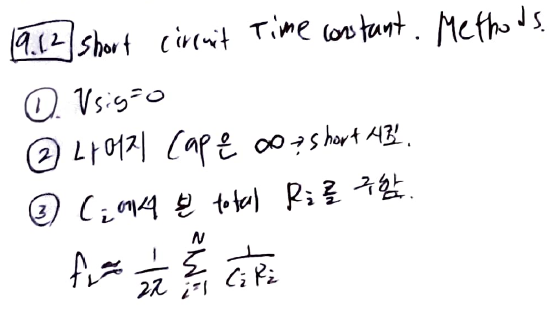 9.12 short circuit Time constant. Methods.
①. Vsig=0
② 나머지 Cap은 ∞→short 시킴.
③ Ci에서 본 total Ri를 구함.
fL≈ 1/2π N∑i=1 1/CiRi